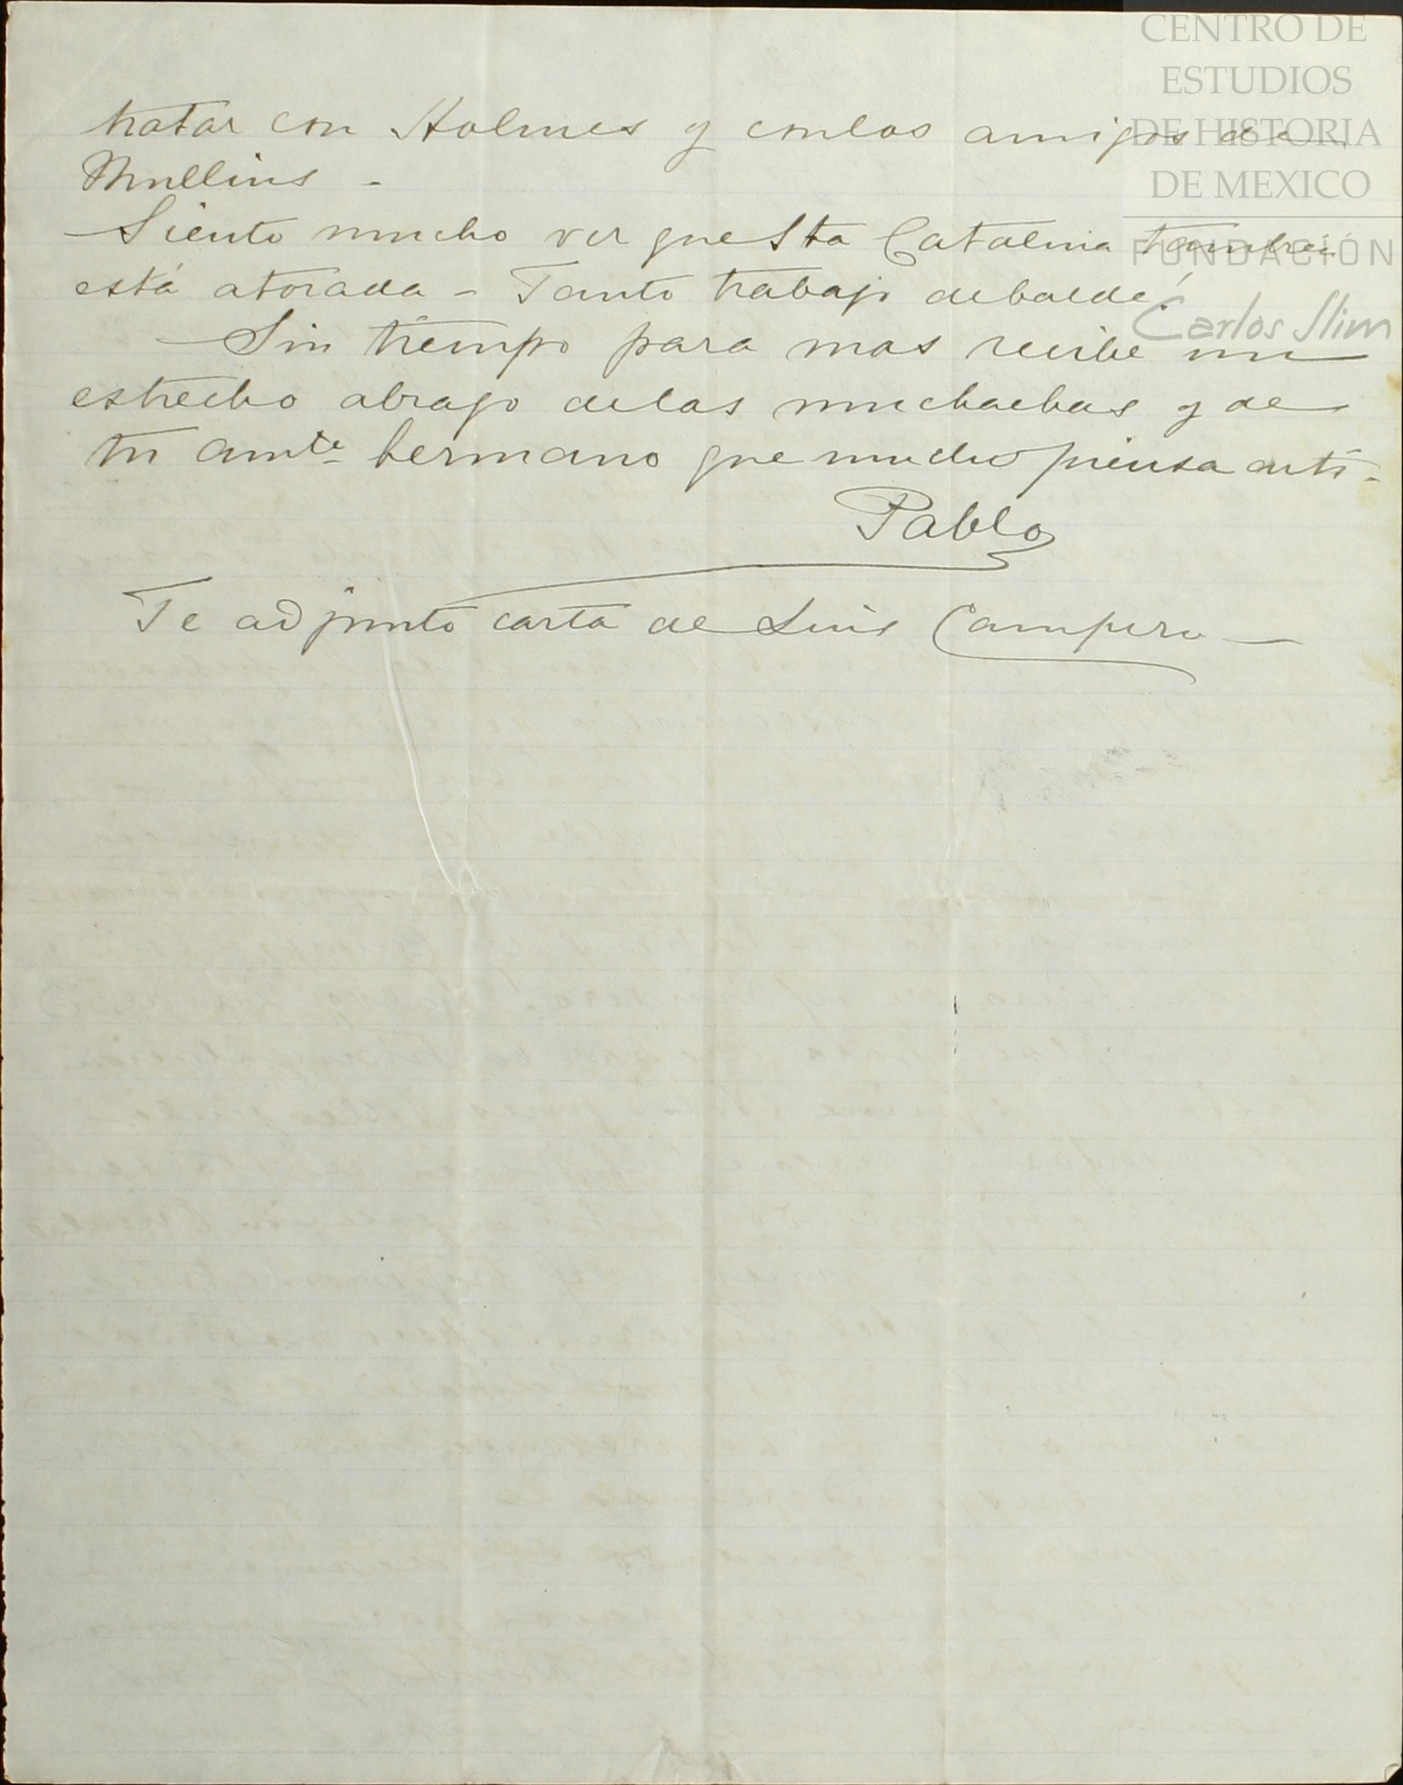 CENTRO DE
ESTUDIOS
DE HISTORIA
DE MEXICO
FUNDACIÓN
Carlos Slim
tratar con Holmes y con los amigos de
Mullins -
Siento mucho ver que Sta Catalina tambien
está atorada - Tanto trabajo debalde!
Sin tiempo para mas recibe un
estrecho abrazo delas muchachas y de
tu amte hermano que mucho piensa en tí -
Pablo
Te adjunto carta de Luis Campero -